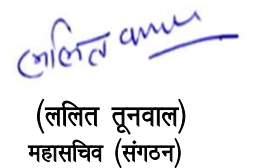 ललित
(ललित तूनवाल)
महासचिव (संगठन)